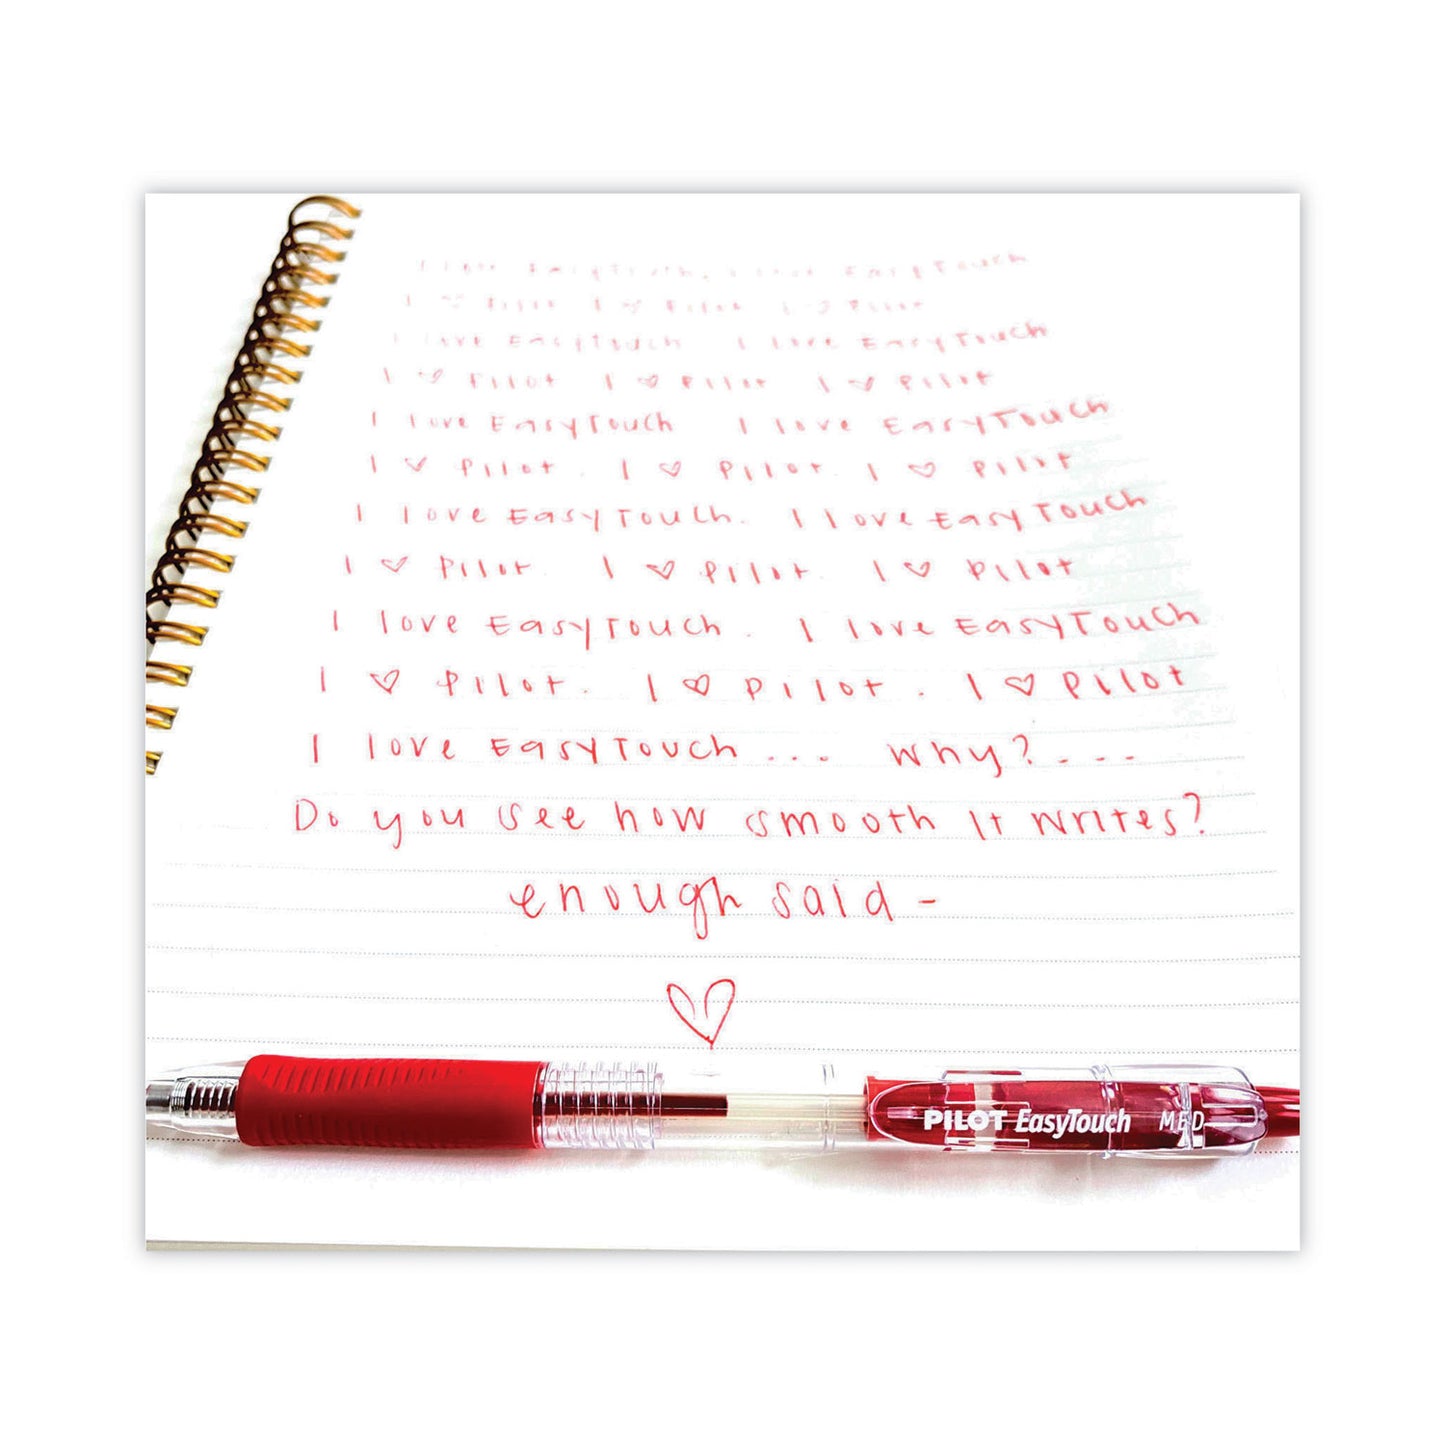 I love EasyTouch. I love EasyTouch
I ♡ Pilot I ♡ Pilot I ♡ Pilot
I love EasyTouch I love EasyTouch
I ♡ Pilot I ♡ Pilot I ♡ Pilot
I love EasyTouch I love EasyTouch
I ♡ Pilot. I ♡ Pilot. I ♡ Pilot
I love EasyTouch. I love EasyTouch
I ♡ Pilot. I ♡ Pilot. I ♡ Pilot
I love EasyTouch. I love EasyTouch
I ♡ Pilot. I ♡ Pilot. I ♡ Pilot
I love EasyTouch... Why?...
Do you see how smooth it writes?
enough said -
♡
PILOT EasyTouch MED